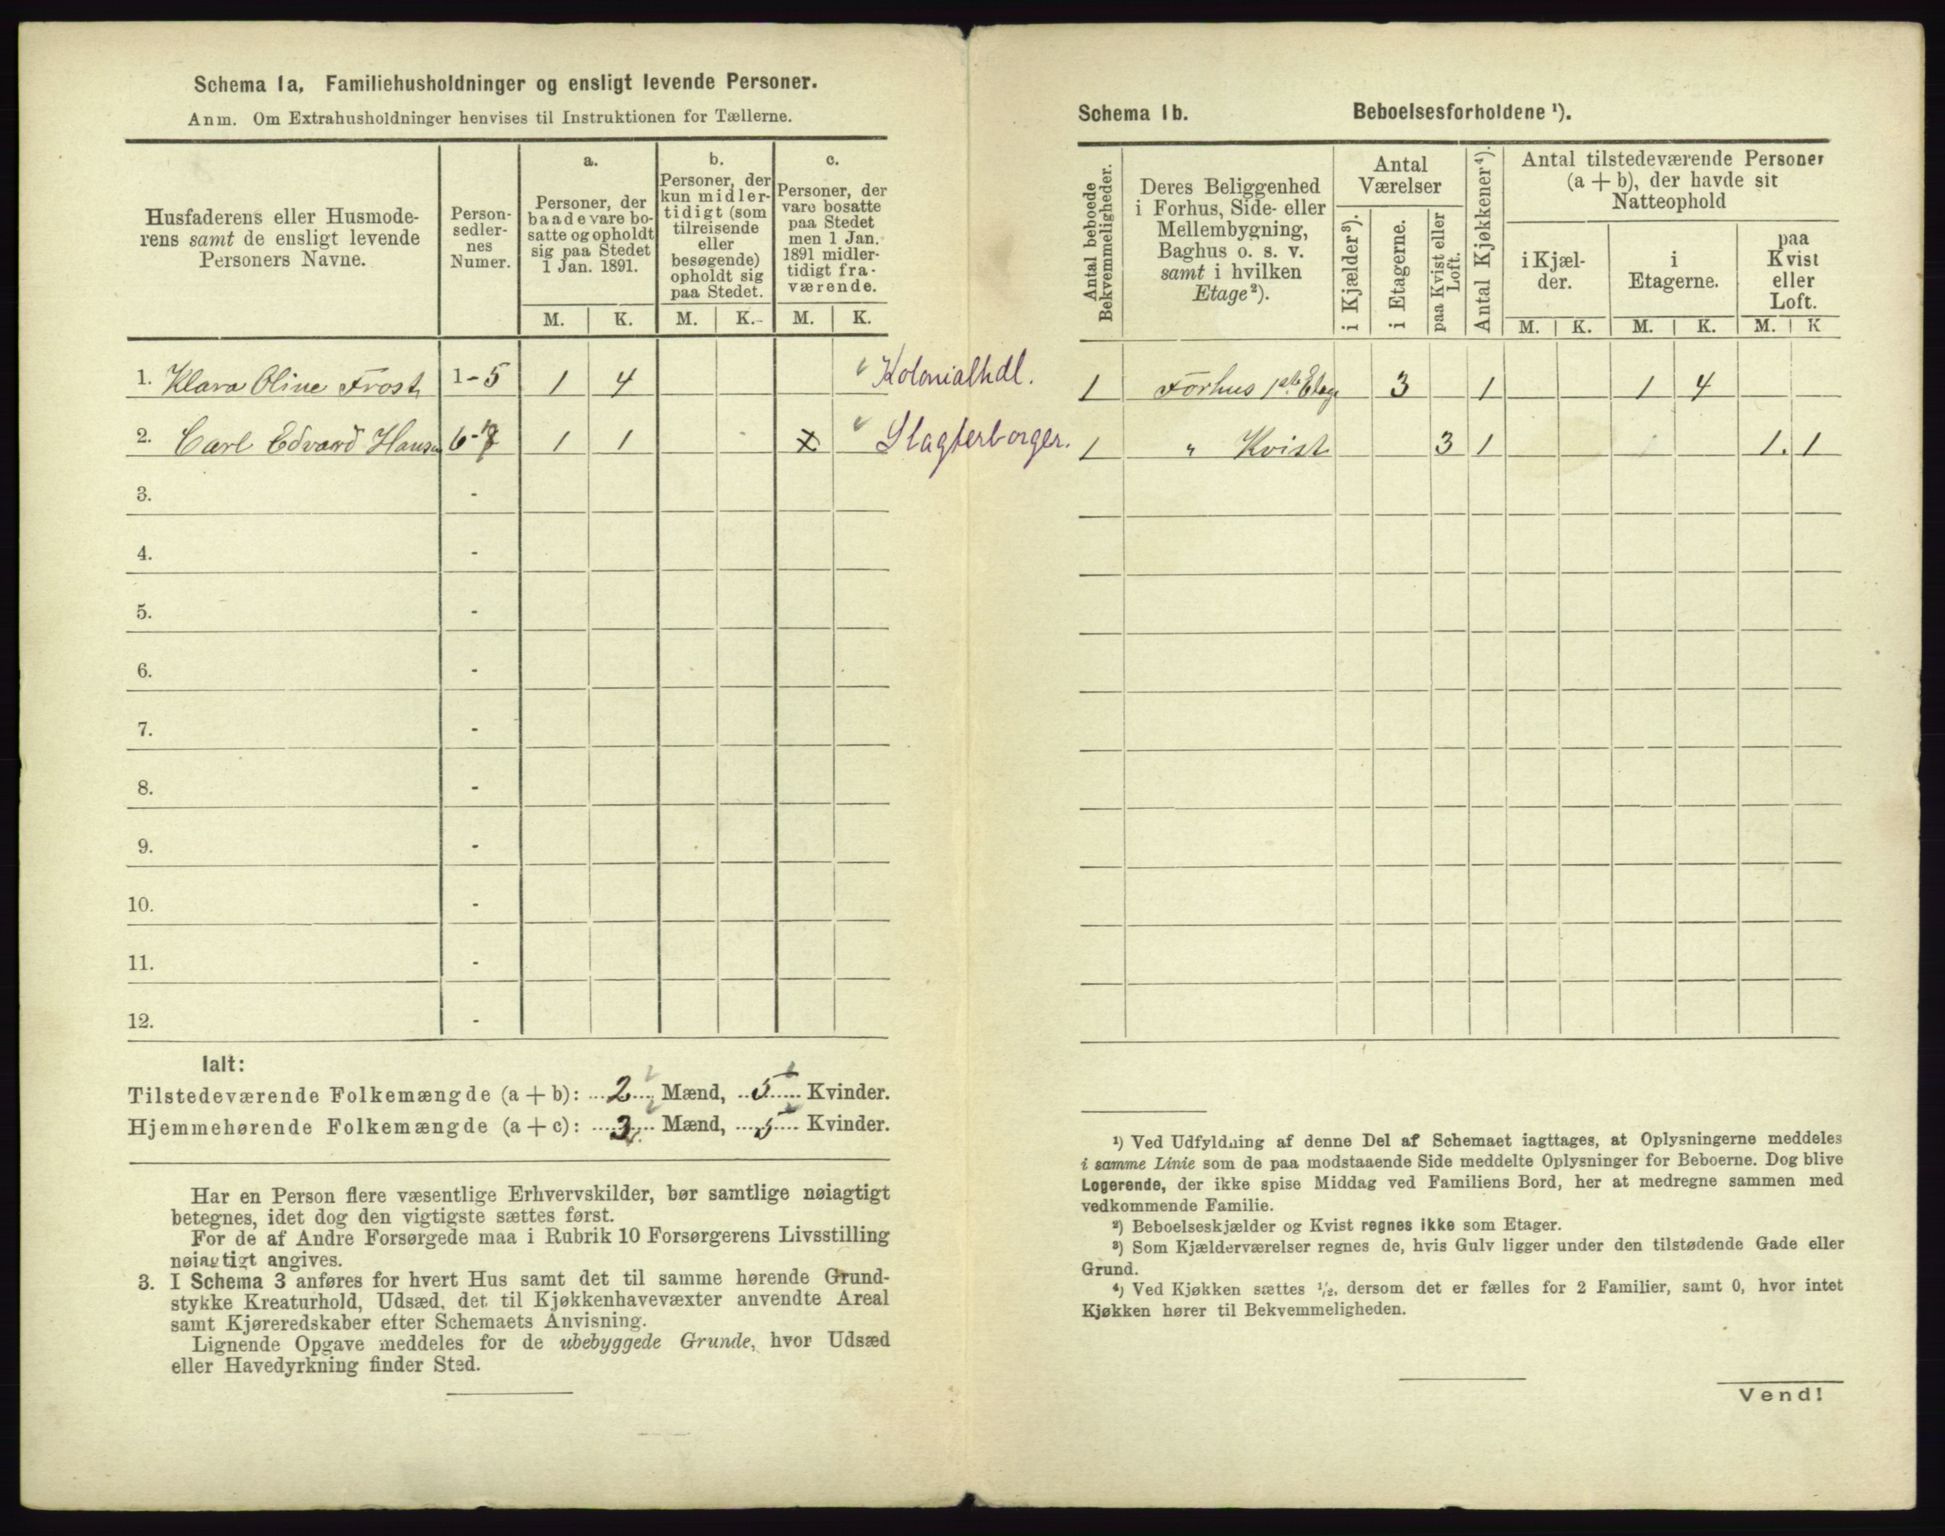 Schema 1a, Familiehusholdninger og ensligt levende Personer.
Anm. Om Extrahusholdninger henvises til Instruktionen for Tællerne.
Husfaderens eller Husmode-
rens samt de ensligt levende
Personers Navne.
Person-
sedler-
nes
Numer.
a.
Personer, der
baade vare bo-
satte og opholdt
sig paa Stedet
1 Jan. 1891.
b.
Personer, der
kun midler-
tidigt (som
tilreisende
eller
besøgende)
opholdt sig
paa Stedet.
c.
Personer, der
vare bosatte
paa Stedet
men 1 Jan.
1891 midler-
tidigt fra-
værende.
M. K. M. K. M. K.
1. Klara Oline Frost 1-5 1 4 Kolonialhdl.
2. Carl Edvard Hansen 6- 1 1 x Slagterborger.
3. -
4. -
5. -
6. -
7. -
8. -
9. -
10. -
11. -
12. -
Ialt:
Tilstedeværende Folkemængde (a + b): 2 Mænd, 5 Kvinder.
Hjemmehørende Folkemængde (a + c): 3 Mænd, 5 Kvinder.
Har en Person flere væsentlige Erhvervskilder, bør samtlige nøiagtigt
betegnes, idet dog den vigtigste sættes først.
For de af Andre Forsørgede maa i Rubrik 10 Forsørgerens Livsstilling
nøiagtigt angives.
3. I Schema 3 anføres for hvert Hus samt det til samme hørende Grund-
stykke Kreaturhold, Udsæd, det til Kjøkkenhavevæxter anvendte Areal
samt Kjøreredskaber efter Schemaets Anvisning.
Lignende Opgave meddeles for de ubebyggede Grunde, hvor Udsæd
eller Havedyrkning finder Sted.
Schema 1b. Beboelsesforholdene ¹).
Antal beboede
Bekvemmeligheder.
Deres Beliggenhed
i Forhus, Side- eller
Mellembygning,
Baghus o. s. v.
samt i hvilken
Etage²).
Antal
Værelser
i Kjælder³).
i Etagerne.
paa Kvist eller
Loft.
Antal Kjøkkener⁴).
Antal tilstedeværende Personer
(a + b), der havde sit
Natteophold
i Kjæl-
der.
i
Etagerne.
paa
Kvist
eller
Loft.
M. K. M. K. M. K
1 Forhus 1ste Etage 3 1 1 4
1 " Kvist 3 1 1. 1
¹) Ved Udfyldning af denne Del af Schemaet iagttages, at Oplysningerne meddeles
i samme Linie som de paa modstaaende Side meddelte Oplysninger for Beboerne. Dog blive
Logerende, der ikke spise Middag ved Familiens Bord, her at medregne sammen med
vedkommende Familie.
²) Beboelseskjælder og Kvist regnes ikke som Etager.
³) Som Kjælderværelser regnes de, hvis Gulv ligger under den tilstødende Gade eller
Grund.
⁴) Ved Kjøkken sættes ¹/₂, dersom det er fælles for 2 Familier, samt 0, hvor intet
Kjøkken hører til Bekvemmeligheden.
Vend!